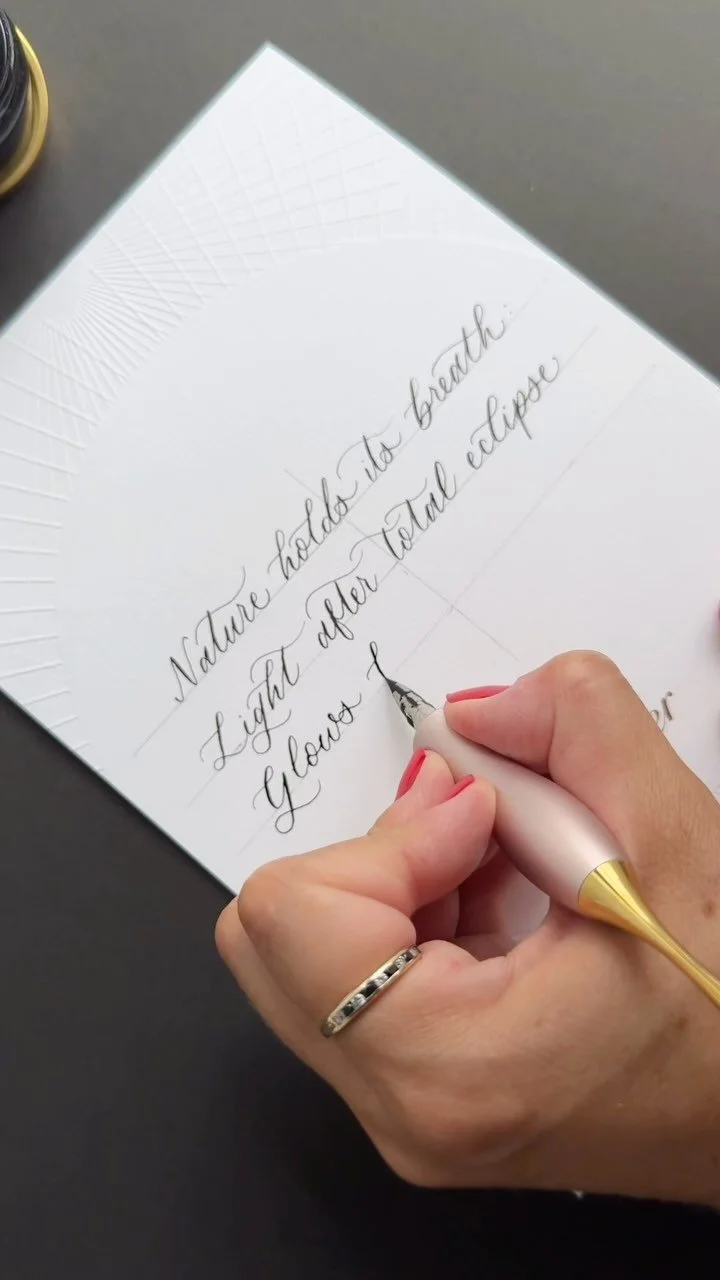 Nature holds its breath:
Light after total eclipse
Glows
er